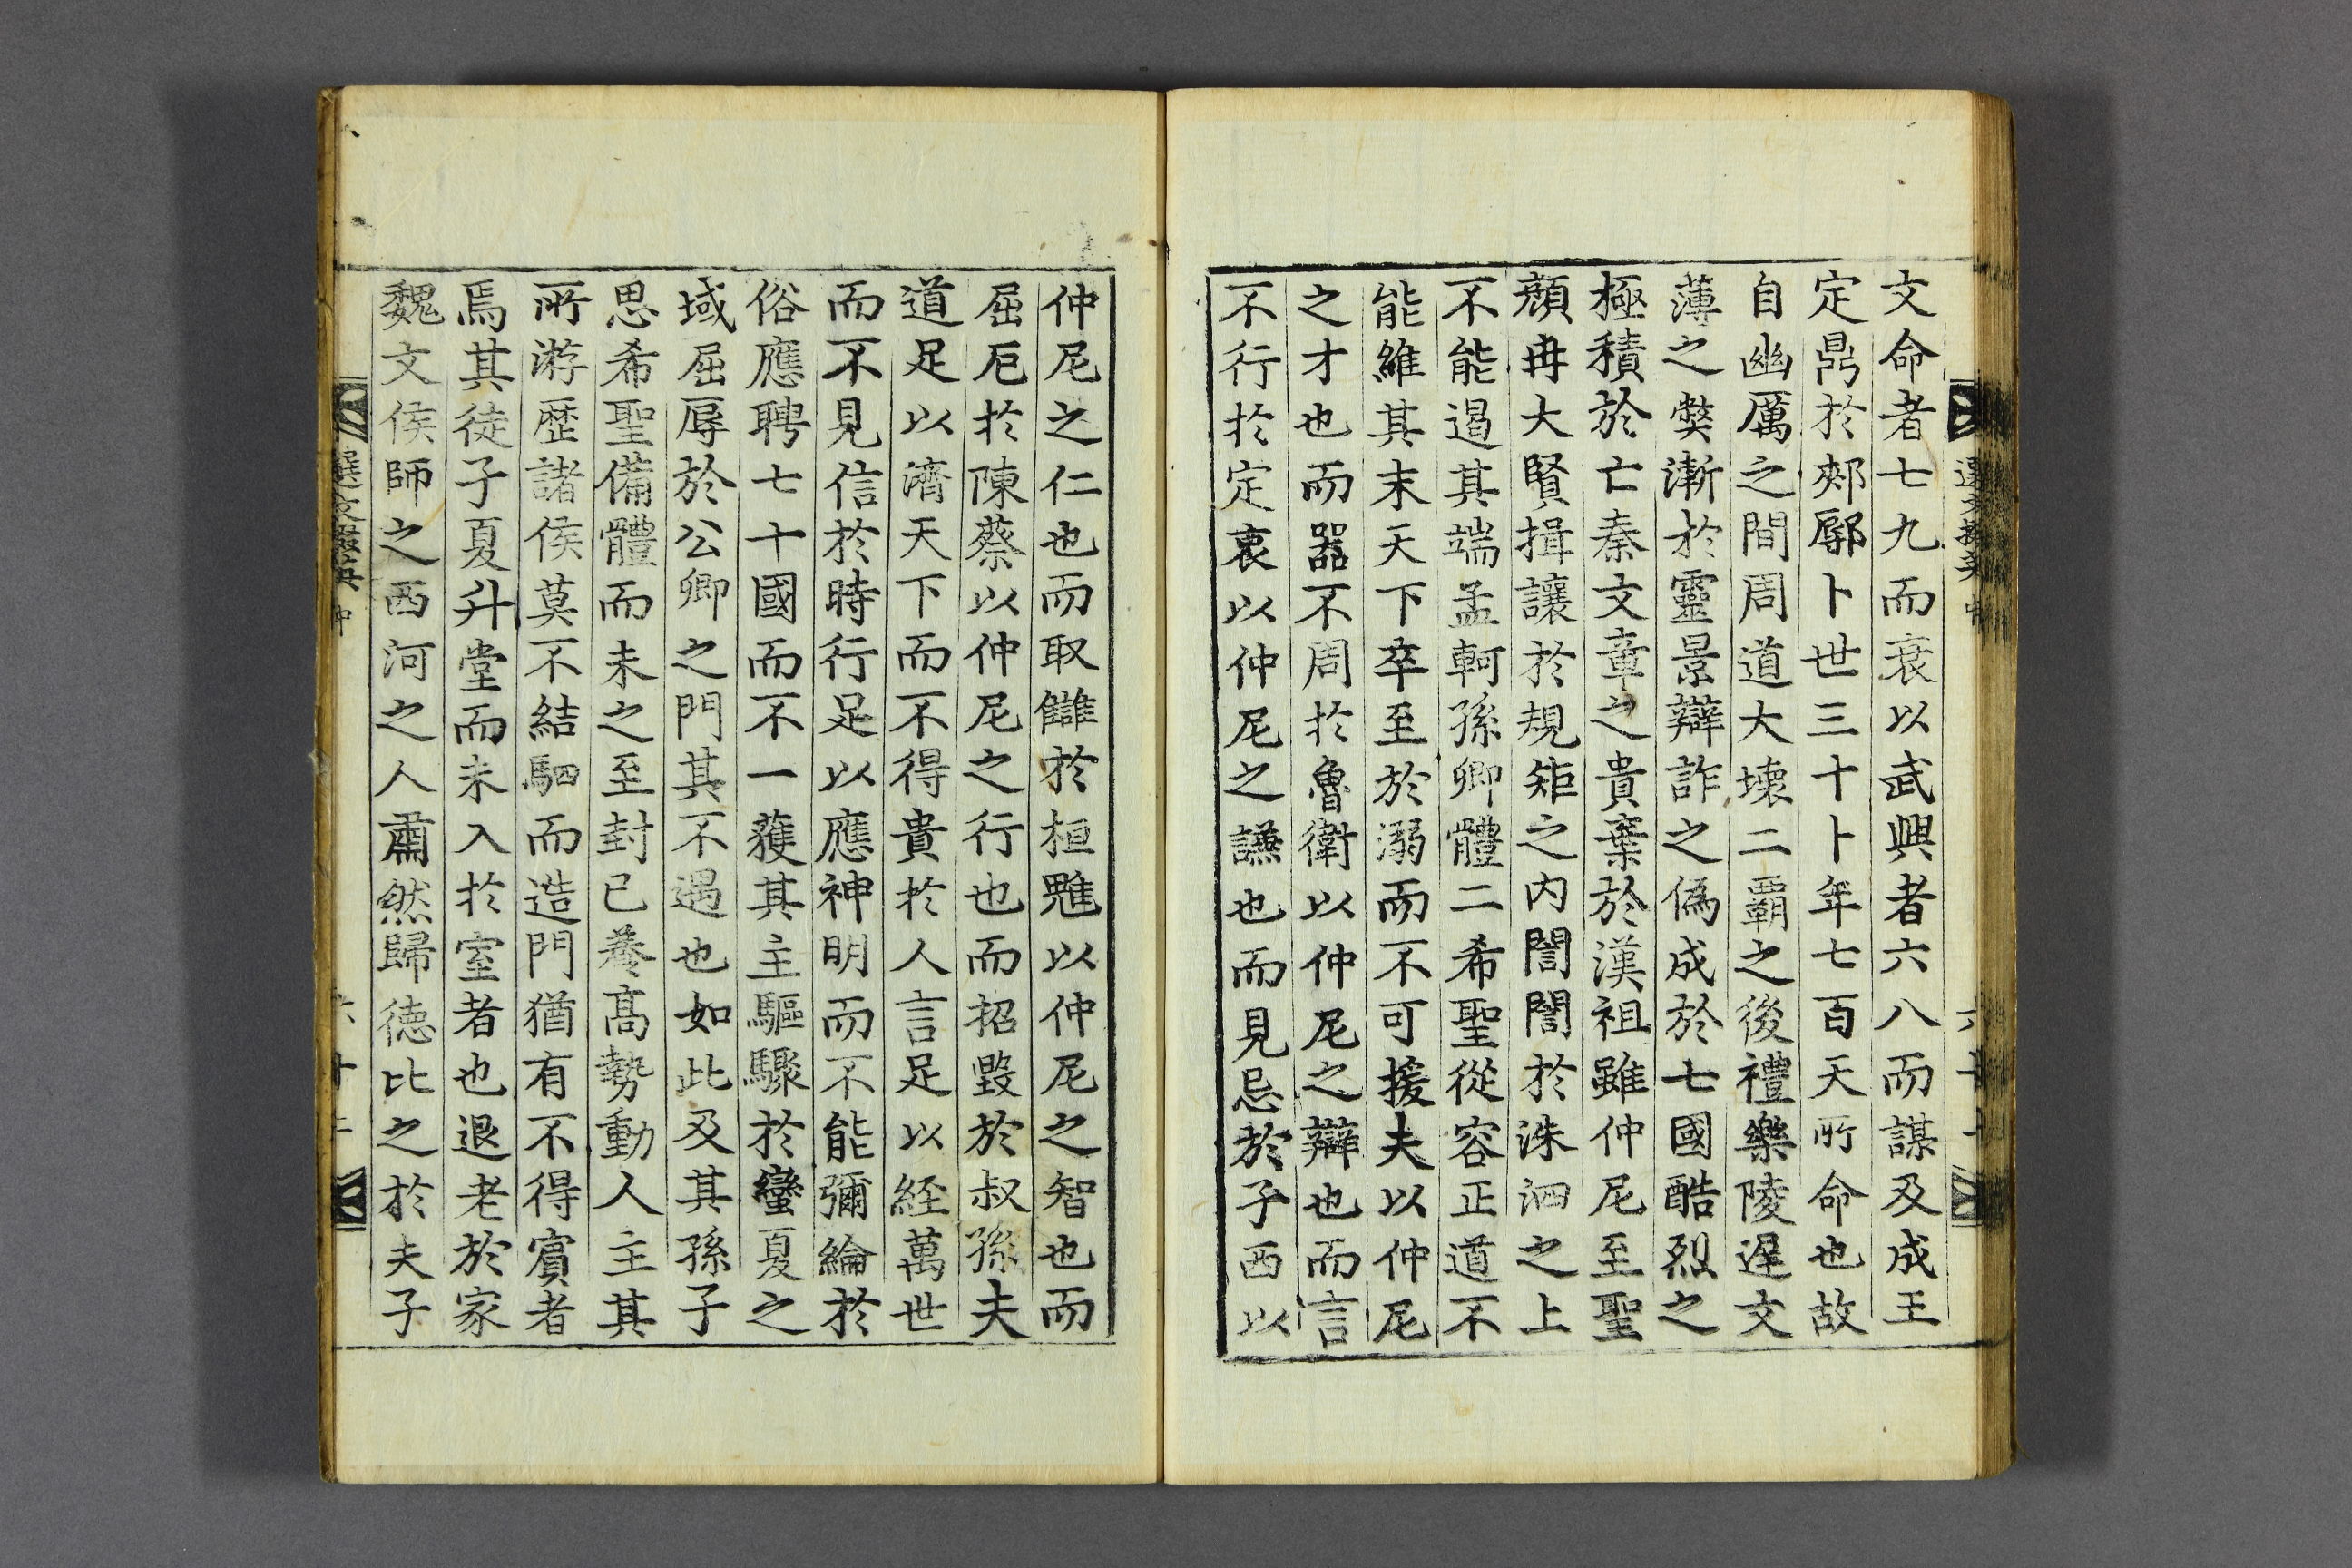 文命者七九而衰以武興者六八而謀及成王
定鼎於郟鄏卜世三十卜年七百天所命也故
自幽厲之間周道大壞二霸之後禮樂陵遲文
薄之獘漸於靈景辯詐之偽成於七國酷烈之
極積於亡秦文章之貴棄於漢祖雖仲尼至聖
顔冉大賢揖讓於規矩之内誾誾於洙泗之上
不能遏其端孟軻孫卿體二希聖從容正道不
能維其末天下卒至於溺而不可援夫以仲尼
之才也而器不周於魯衛以仲尼之辯也而言
不行於定哀以仲尼之謙也而見忌於子西以
仲尼之仁也而取讎於桓魋以仲尼之智也而
屈厄於陳蔡以仲尼之行也而招毀於叔孫夫
道足以濟天下而不得貴於人言足以經萬世
而不見信於時行足以應神明而不能彌綸於
俗應聘七十國而不一獲其主驅驟於蠻夏之
域屈辱於公卿之門其不遇也如此及其孫子
思希聖備體而未之至封已養高勢動人主其
所游歷諸侯莫不結駟而造門猶有不得賓者
焉其徒子夏升堂而未入於室者也退老於家
魏文侯師之西河之人肅然歸德比之於夫子
選文掇英 中